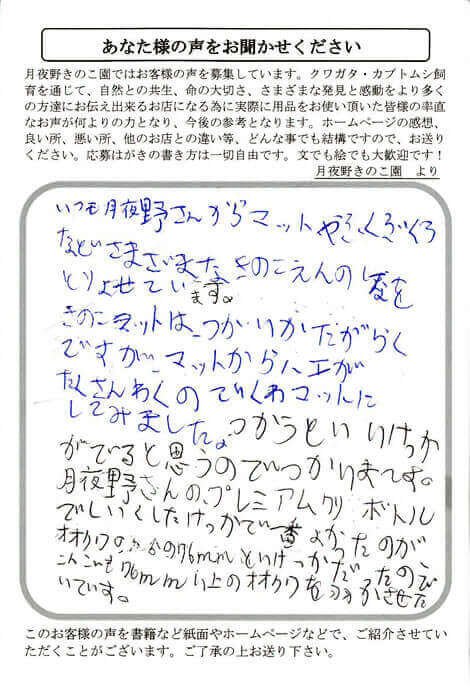 あなた様の声をお聞かせください
月夜野きのこ園ではお客様の声を募集しています。クワガタ・カブトムシ飼
育を通じて、自然との共生、命の大切さ、さまざまな発見と感動をより多く
の方達にお伝え出来るお店になる為に実際に用品をお使い頂いた皆様の率直
なお声が何よりの力となり、今後の参考となります。ホームページの感想、
良い所、悪い所、他のお店との違い等、どんな事でも結構ですので、お送り
ください。応募はがきの書き方は一切自由です。文でも絵でも大歓迎です！
月夜野きのこ園 より
いつも月夜野さんからマットや
などさまざまなきのこえんの
とりよせています。
きのこマットは、つかいかたがらく
ですが、マットからハエが
たくさんわくのでくわマットに
してみました。つかうといいけっか
がでると思うのでつかります。
月夜野さんの、プレミアムクリボトル
でしいくしたけっかで一番よかったのが
オオクワの76mmといけっかだったので
こんかいも76mm以上のオオクワを羽かさせた
いです。
このお客様の声を書籍など紙面やホームページなどで、ご紹介させてい
ただくことがございます。ご了承の上お送り下さい。